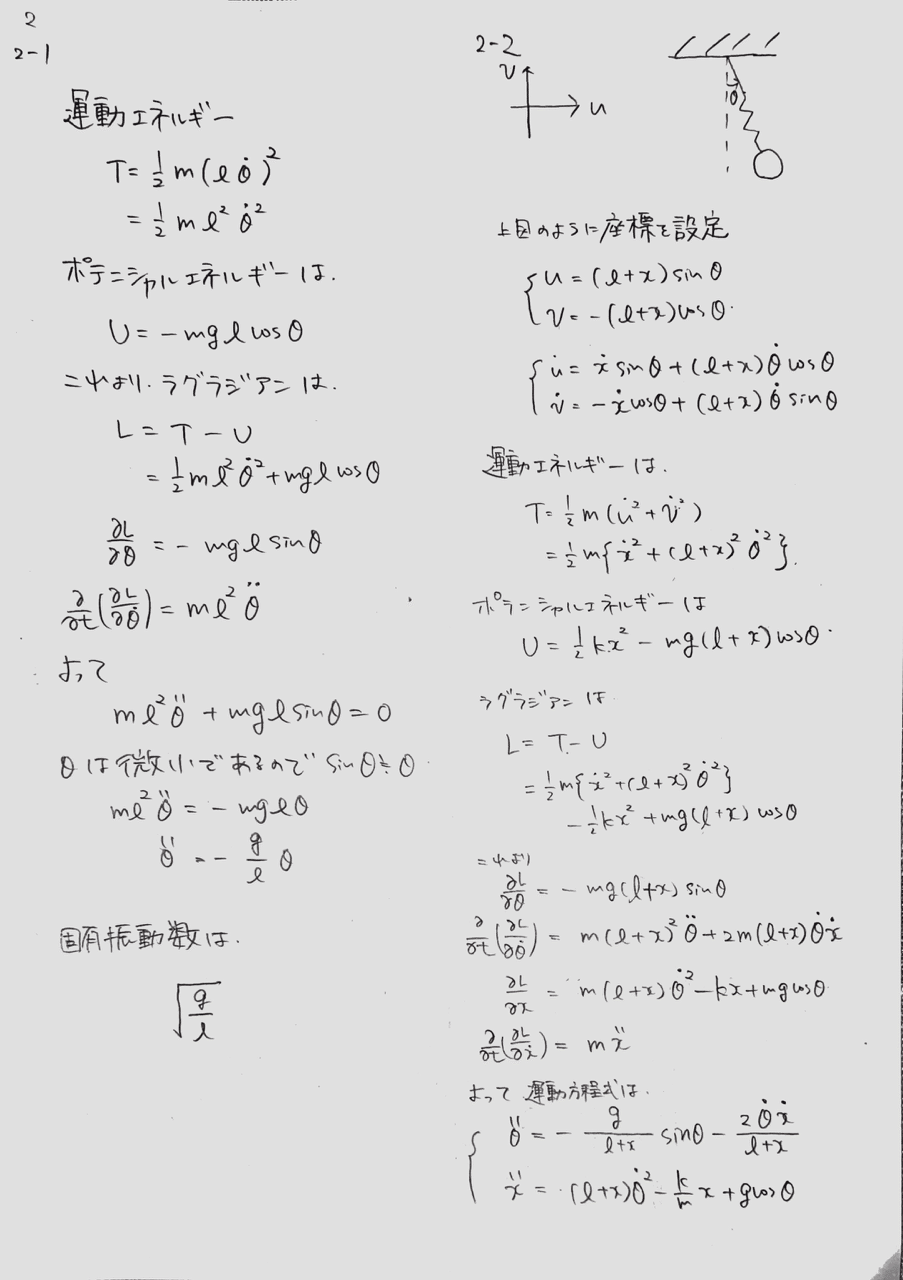 2
2-1
運動エネルギー
T = 1/2 m(lθ̇)²
= 1/2 m l² θ̇²
ポテンシャルエネルギーは.
U = - mg l cosθ
これより. ラグラジアンは.
L = T - U
= 1/2 m l² θ̇² + mg l cosθ
∂L/∂θ = - mg l sinθ
∂/∂t(∂L/∂θ̇) = m l² θ̈
よって
m l² θ̈ + mg l sinθ = 0
θは微小であるので sinθ≒θ
m l² θ̈ = - mg l θ
θ̈ = - g/l θ
固有振動数は.
√(g/l)
2-2
v
u
θ
上図のように座標を設定
{ u = (l+x) sinθ
v = -(l+x) cosθ.
{ u̇ = ẋ sinθ + (l+x) θ̇ cosθ
v̇ = - ẋ cosθ + (l+x) θ̇ sinθ
運動エネルギーは.
T = 1/2 m (u̇² + v̇²)
= 1/2 m{ẋ² + (l+x)² θ̇²}.
ポテンシャルエネルギーは
U = 1/2 kx² - mg(l+x) cosθ.
ラグラジアンは
L = T - U
= 1/2 m{ẋ² + (l+x)² θ̇²}
- 1/2 kx² + mg(l+x) cosθ
これより
∂L/∂θ = - mg(l+x) sinθ
∂/∂t(∂L/∂θ̇) = m(l+x)² θ̈ + 2m(l+x) θ̇ẋ
∂L/∂x = m(l+x) θ̇² - kx + mg cosθ
∂/∂t(∂L/∂ẋ) = m ẍ
よって 運動方程式は.
{ θ̈ = - g/(l+x) sinθ - 2θ̇ẋ/(l+x)
ẍ = (l+x)θ̇² - k/m x + g cosθ